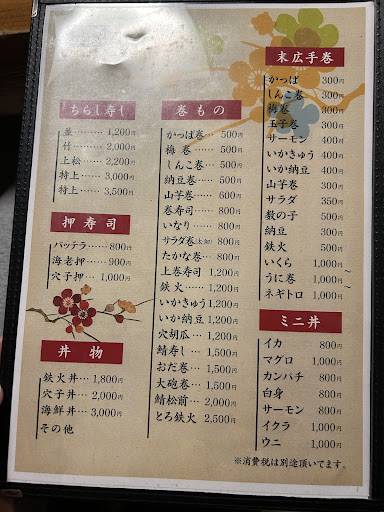 ちらし寿し
並……… 1,200円
竹……… 2,000円
上松…… 2,200円
特上…… 3,000円
特上…… 3,500円
押寿司
バッテラ…… 800円
海老押…… 900円
穴子押… 1,000円
丼物
鉄火丼… 1,800円
穴子丼… 2,000円
海鮮丼… 3,000円
その他
巻もの
かっぱ巻… 500円
梅巻… 500円
しんこ巻… 500円
納豆巻… 500円
山芋巻… 600円
巻寿司… 800円
いなり… 800円
サラダ巻(太細) 800円
たかな巻… 800円
上巻寿司 1,200円
鉄火… 1,200円
いかきゅう 1,200円
いか納豆 1,200円
穴胡瓜… 1,200円
鯖寿し… 1,500円
おだ巻… 1,500円
大砲巻… 1,500円
鯖松前… 2,000円
とろ鉄火 2,500円
末広手巻
かっぱ 300円
しんこ巻 300円
梅巻 300円
玉子巻 300円
サーモン 400円
いかきゅう 400円
いか納豆 400円
山芋巻 300円
サラダ 350円
数の子 500円
納豆 300円
鉄火 500円
いくら 1,000円
うに巻 1,000円
ネギトロ 1,000円
ミニ丼
イカ 800円
マグロ 1,000円
カンパチ 800円
白身 800円
サーモン 800円
イクラ 1,000円
ウニ 1,000円
※消費税は別途頂いてます。